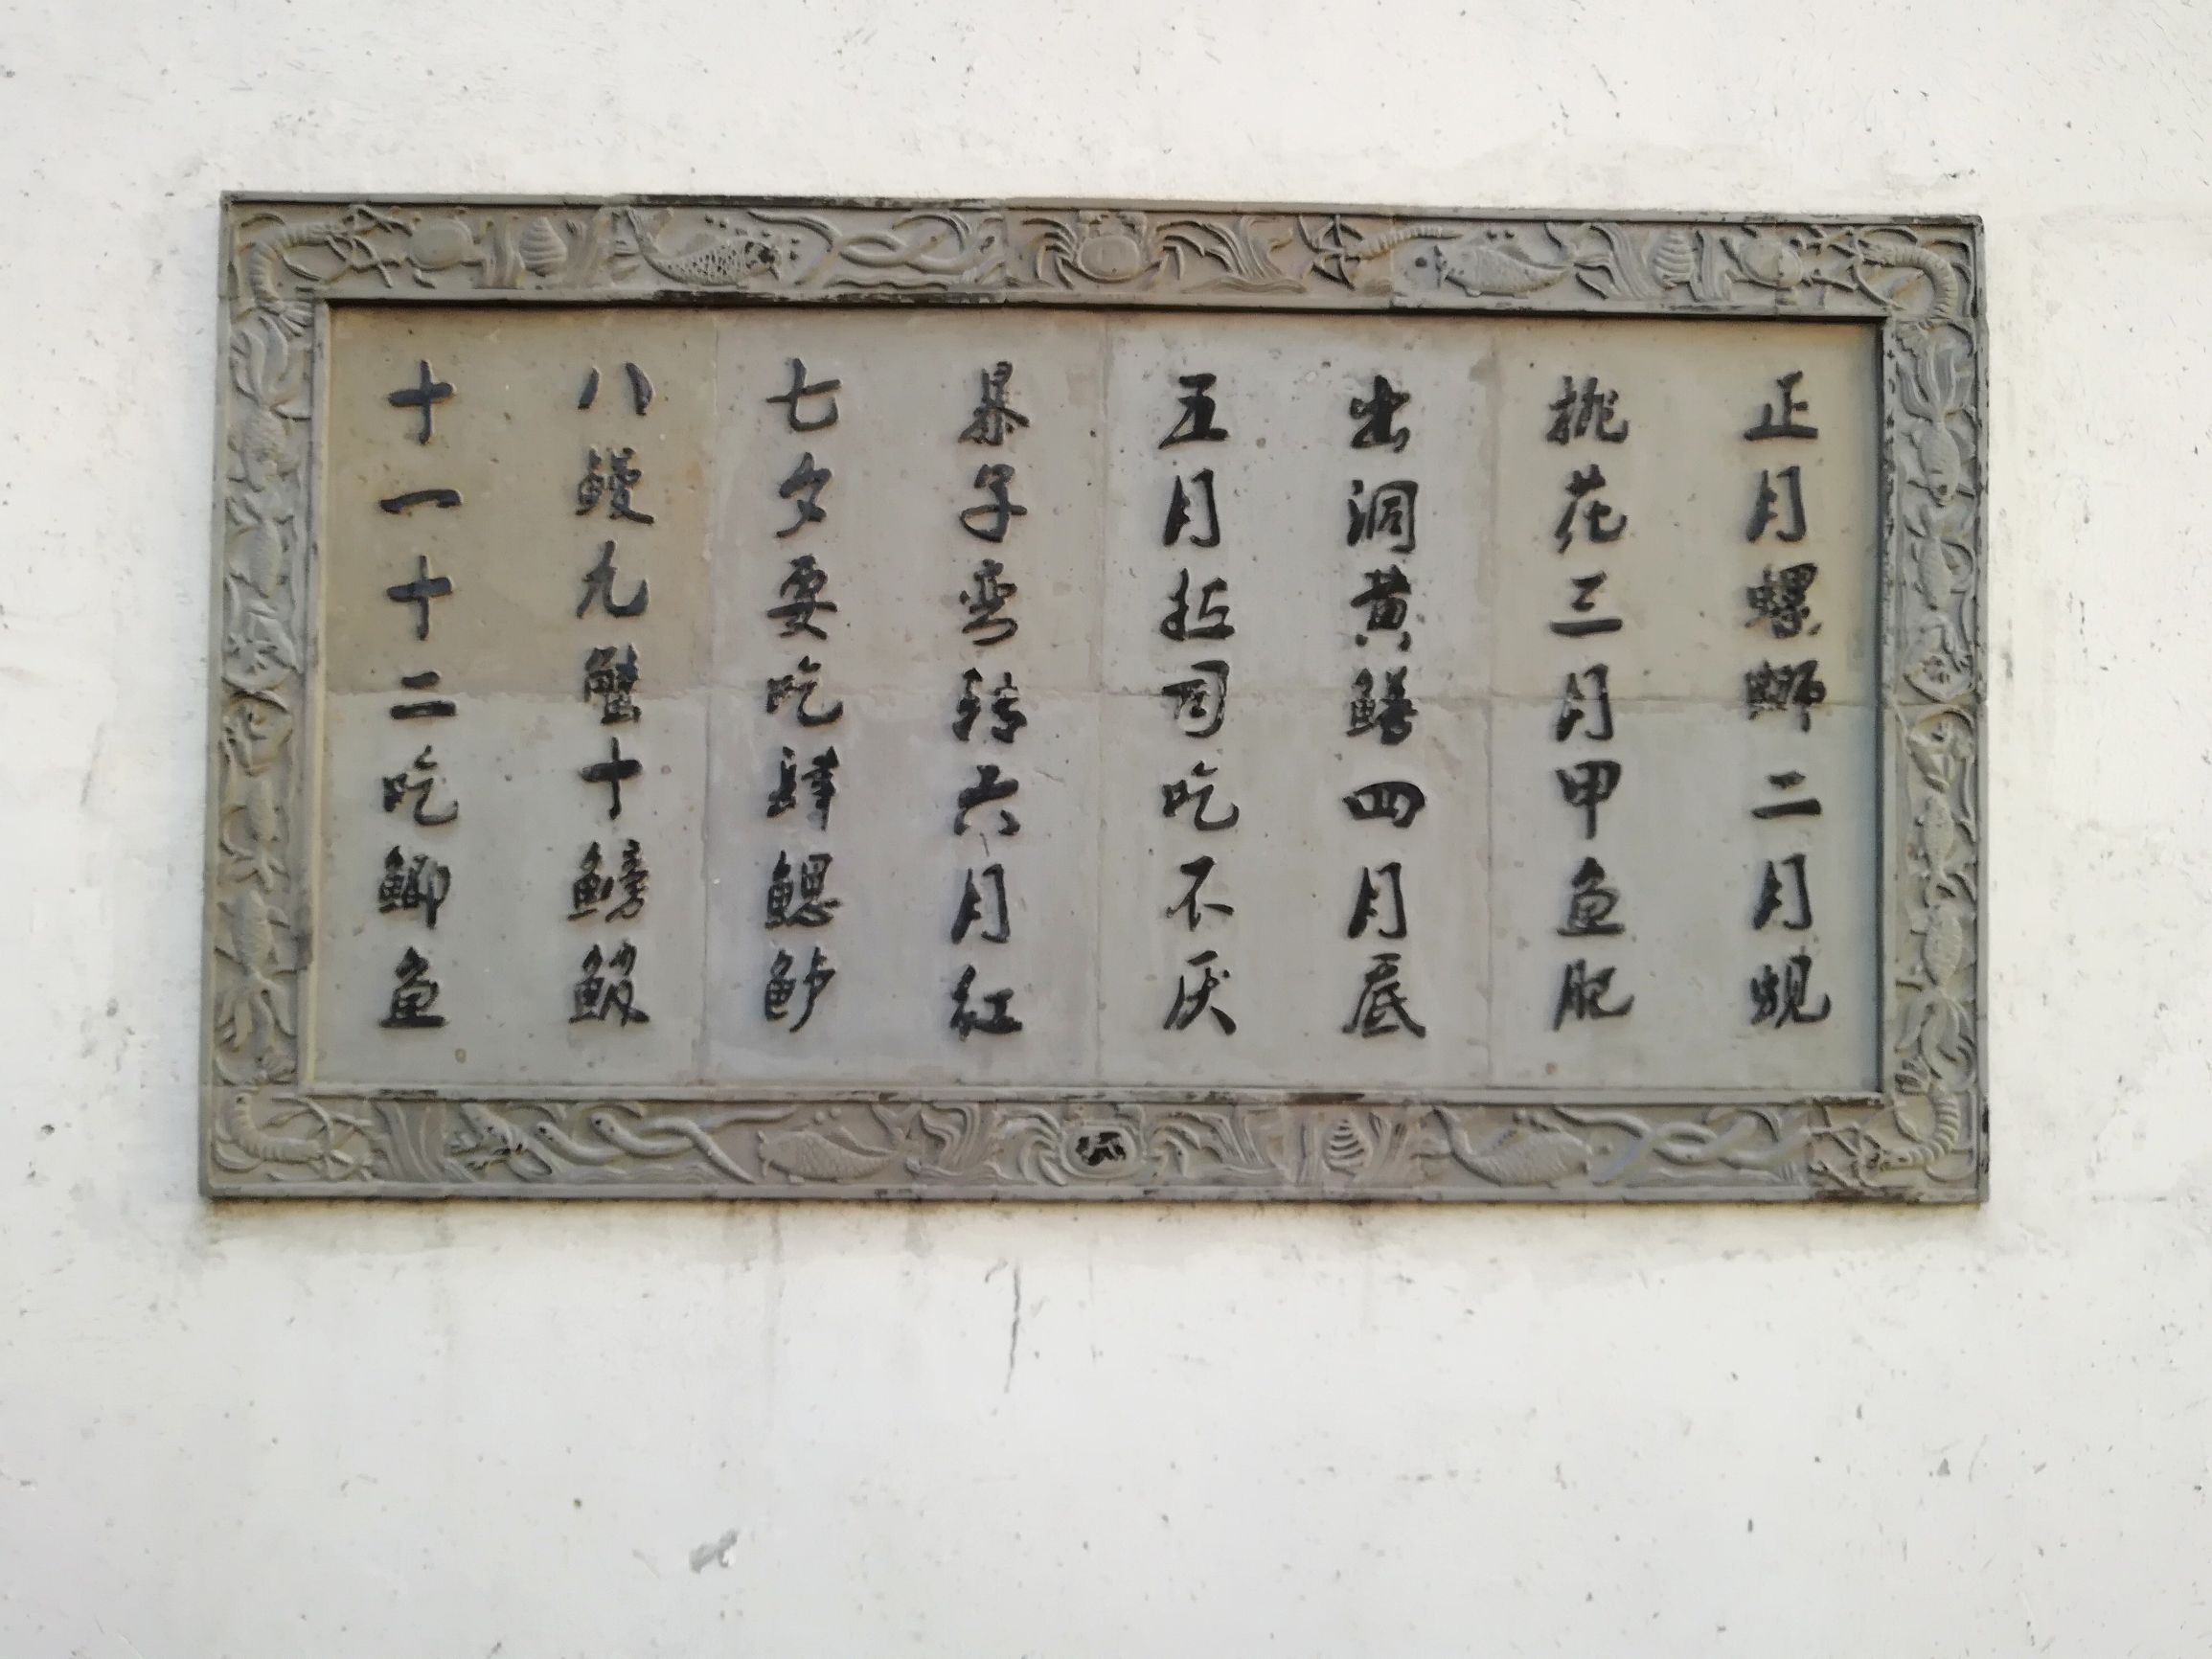 正月螺蛳二月蚬
桃花三月甲鱼肥
出洞黄鳝四月底
五月拉司吃不厌
暴子弯转六月红
七夕要吃肆鳃鲈
八鳗九蟹十鳑鲏
十一十二吃鲫鱼